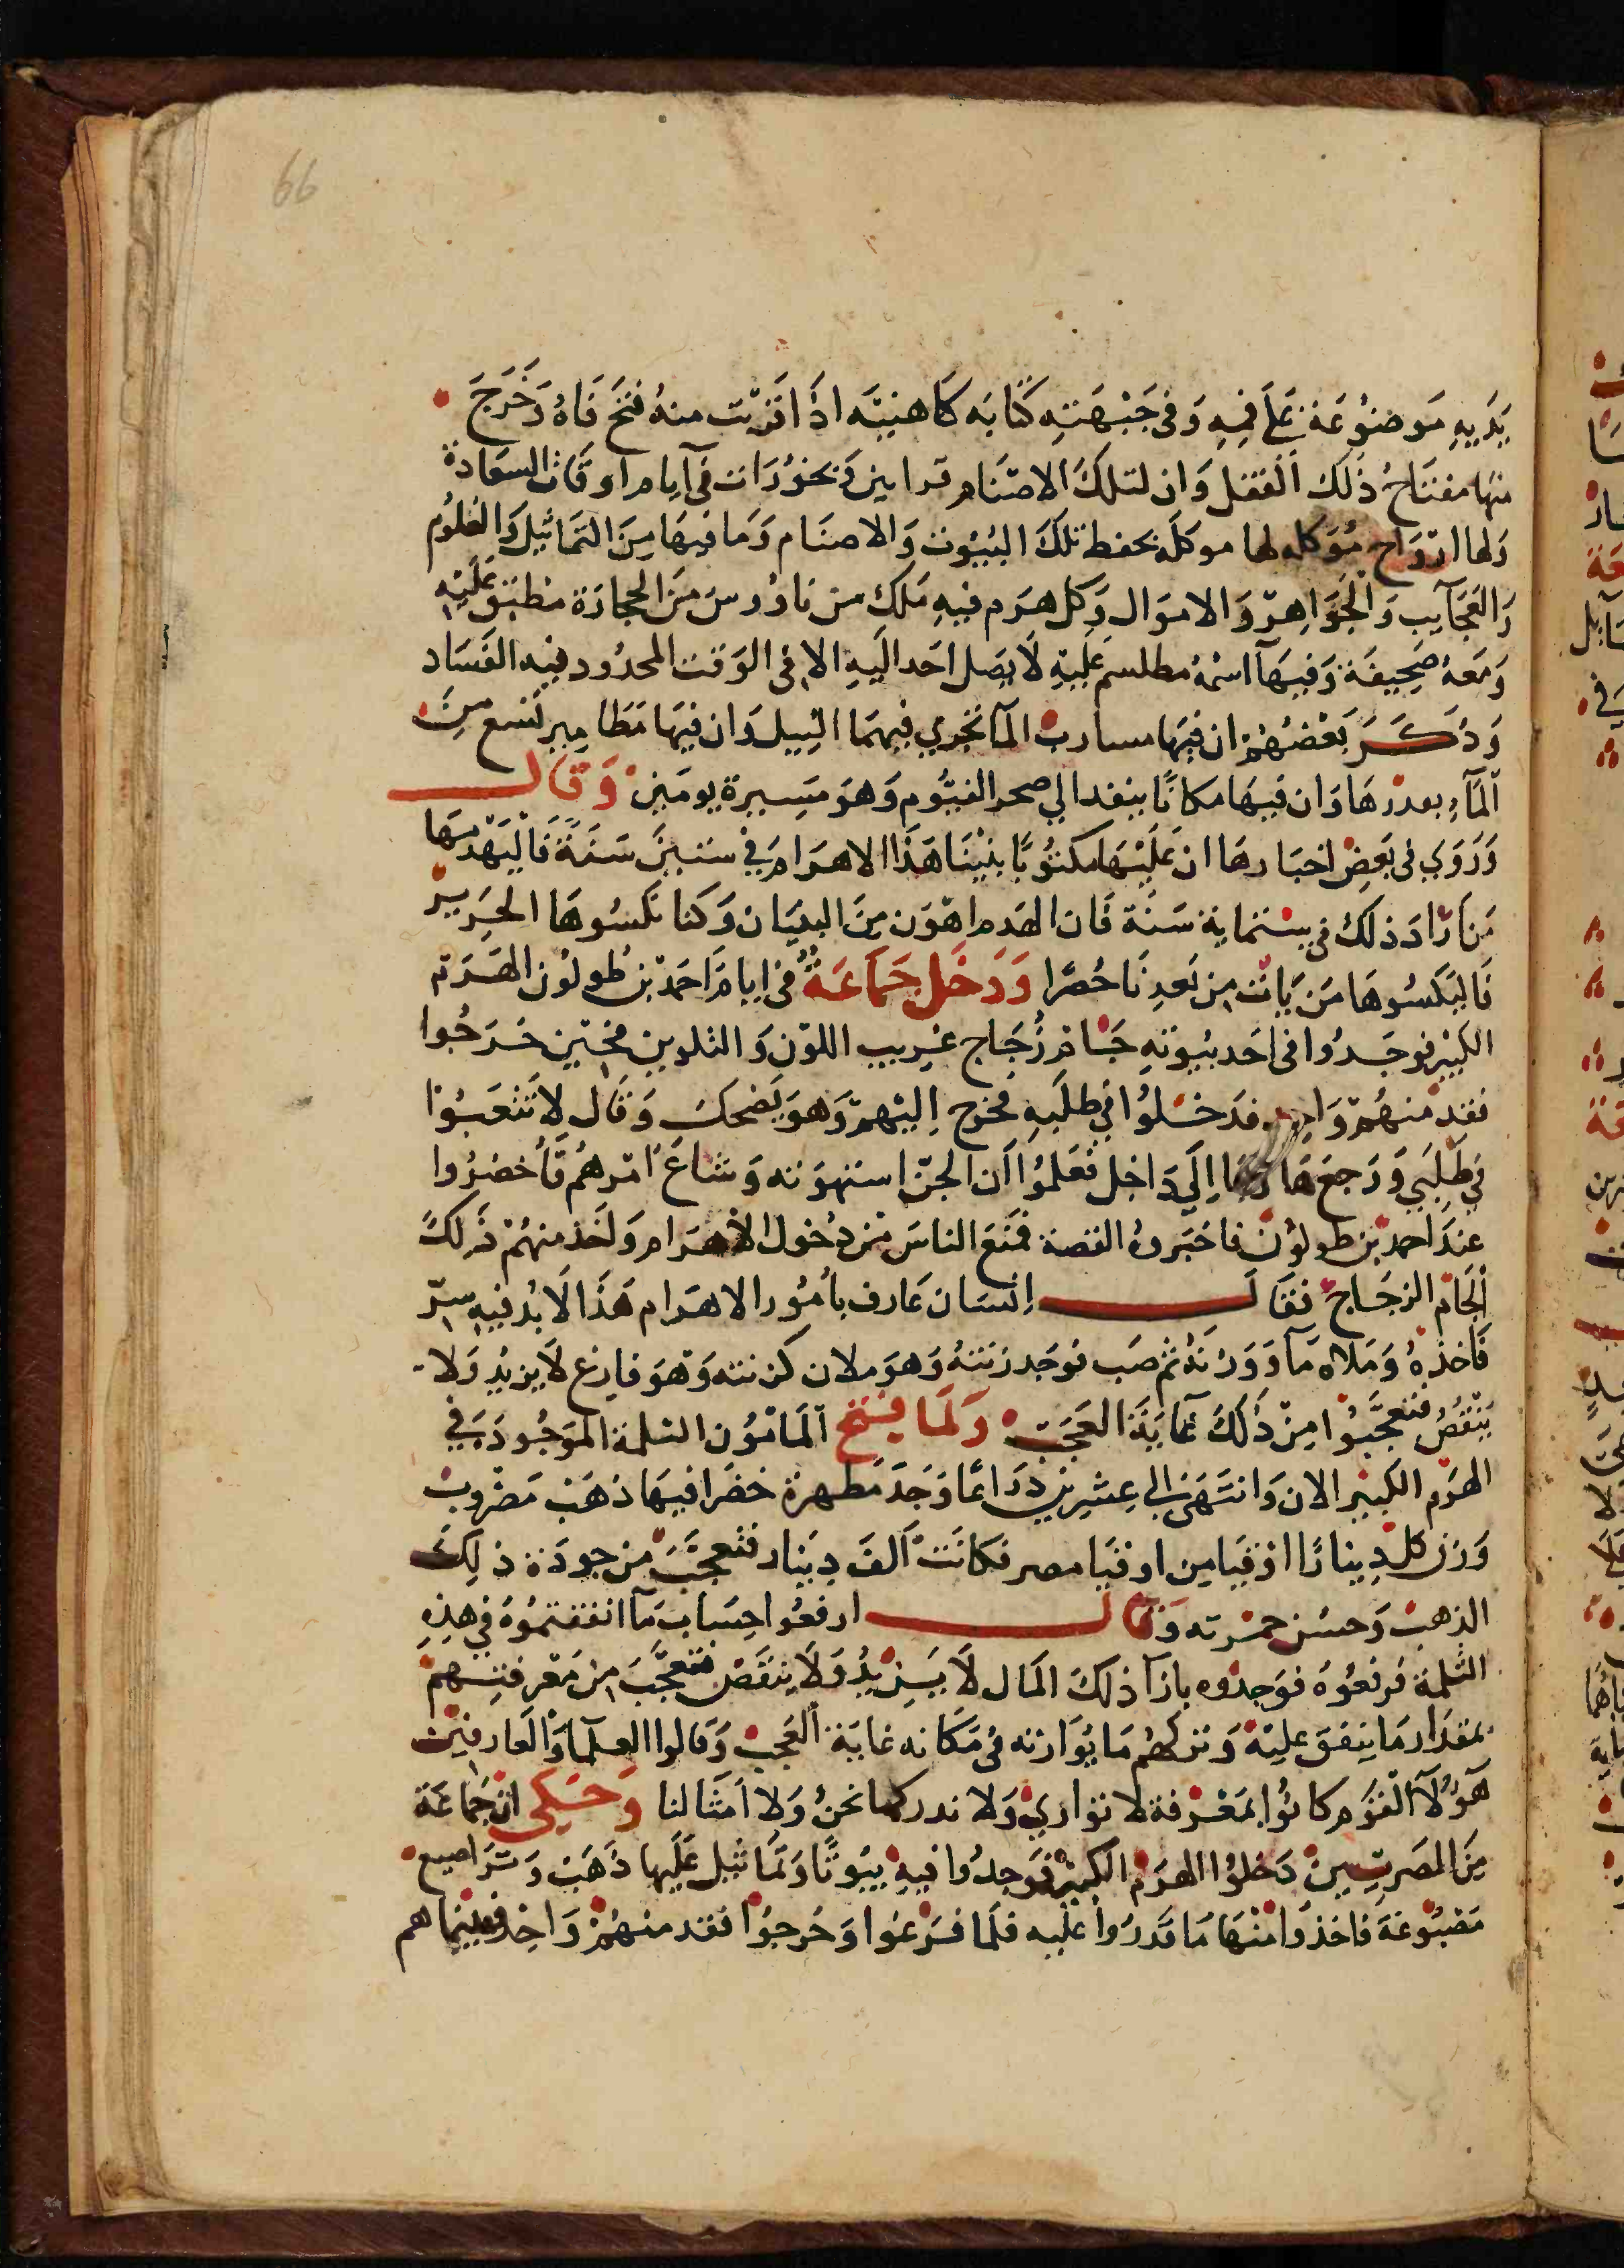 66
يَدَيهِ مَوضوُعَة عَلَى فِيهِ وَفى جَبْهَتِهِ كتَابَه كَاهنيَّه اذَا قرَبَت منهُ فتحَ فَاهُ وَخَرَجَ
منهَا مفتَاحُ ذَلك القفل وَان لتلكَ الاصنَام قرابين وَبخوُرَات فى آيام اوقَات السعَادة
وَلها اروَاح مُوَكله لها موكلَه بحفظ تلكَ البُيُوت وَالاصنَام وَمَا فيهَا مِنَ التمَاثيل وَالعلُوم
وَالعَجَآيب وَالجوَاهِر وَالاموَال وَكل هَرَم فيهِ مَلك من ناوُوس مَنَ الحجارَة مطبَق عَلَيْهِ
وَمَعهُ صَحِيفَة وَفيهَآ اسْمُه مطلسم عليَه لَا يصَل احَد اليَهِ الا فى الوَقت المحدُود فيه الفَسَاد
وَذكَـــرَ بَعْضهُمْ ان فيَهَا مسارب المآ تجري فيهمَا النِيل وَان فيَهَا مَطَامِير تسع مِنَ
المَآءِ بعدرهَا وَان فيهَا مكانًا ينفد الي صحر الفيُّوم وَهوَ مَسِيرة يومَين وَقَالـــ
وَرَوَي فى بَعضِ اخبَارهَا ان عَلَيْهَا مكتوُبًا بنيْنَا هَذَا الاهرَام في ستين سَنَةً فَاليَهْدِمهَا
مَن ارَادَ ذلكَ فى ستماية سَنَة فَان الهدم اهوَن مِنَ البنيَان وَكنا نكسُوهَا الحَرير
فَاليَكسُوهَا مَن يَأتى من بَعدنَا حُصرًا وَدَخَل جَمَاعَةٌ فى ايامِ احَمدْ بن طولوُن الهَرَم
الكبير فوجَدُوا فى احَد بيُوتهِ جَام زُجَاج غريب اللوْن وَالتلوين فحين خَرَجُوا
فقد منهُمْ وَاحِد فدَخلُوا في طلَبهِ فخرج اِليْهمْ وَهوَ يَضحكَ وَقَال لَا تتعَبُوا
في طَلبَي وَرَجعَ هَاربًا اِلَي دَاخِل فعَلمُوا اَن الجنّ استهوَته وَشاعَ امرهُم فَأُحضرُوا
عندَ احمد بْن طولوُن فاخبَروهُ القصة فمَنَع الناسَ من دُخول الأهرَام وَاخَذ منهُمْ ذَلكَ
الجَام الزجَاج فقَالَـــ اِنسَان عَارف بأمُور الاهرَام هَذَا لَا بُد فيهِ سِرّ
فَاخذهُ وَمَلَاه مَآ وَوَزنَهُ ثم صَب فوَجَد زنتهُ وَهوَ ملان كزنته وَهوَ فارغ لَا يزيُد وَلا
يَنْقُصُ فتعجَّبوُا مِنْ ذَلكَ غَايَةَ العَجَب وَلَمَا فتح المَامُون الثلمة المَوَجُودَة في
الهرَم الكبير الان وَانتَهَى الي عشرين ذرَاعًا وَجَدَ مَطهرة خضَرا فيهَا ذهَبْ مَضرُوب
وَزن كل دِينارًا اوقيَا مِن اوقيَا مصر فكانَتْ اَلفَ دِيَنار فتعجَّبَ من جودَة ذلِكَ
الذهبْ وَحسُن حمرته وَقَالـــ ارفعُوا حِسَابَ مَآ انفقتموُهُ في هذهِ
الثلمة فرفعُوهُ فوَجدُوه بازآ ذلكَ المَال لَا يَزيُد وَلَا ينقَصْ فتعجَّبَ مِن مَعْرفتهم
بمقدَار مَا ينفقَ عليَهْ وَتركهُم مَا يُوَازنه فى مَكَانه غايَة العَجبْ وَقالوا العلَمآ وَالعَارفين
هَؤلَآ القوَم كانوُا بمَعْرفة لا نوَازي وَلا ندركها نحنُ وَلا اَمثَالنا وَحُكى ان جَماعَة
مِنَ المصَريين دَخلوُا الهرَم الكبير فوَجدُوا فيهِ بيُوتًا وَتمَاثيل عَلَيها ذَهَبْ وَترَاصيع
مَصبُوغة فاخذوَا منْهَا مَا قدَرُوا عَليه فلَما فرَغوُا وَخَرجوُا فقد منهُمْ وَاحِد فبينما هم